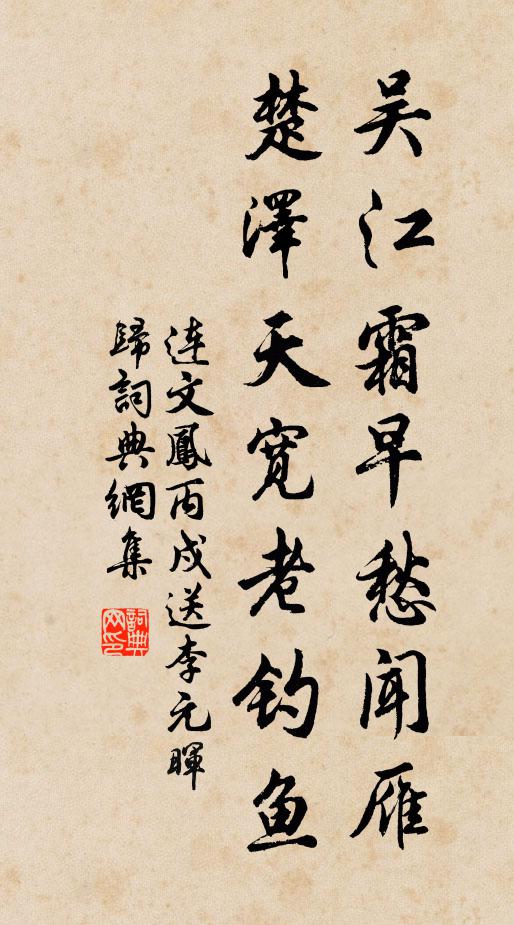 吴江霜早愁闻雁
楚澤天宽老钓鱼
连文鳳丙戍送李元暉
歸詞典網集
詞典网印